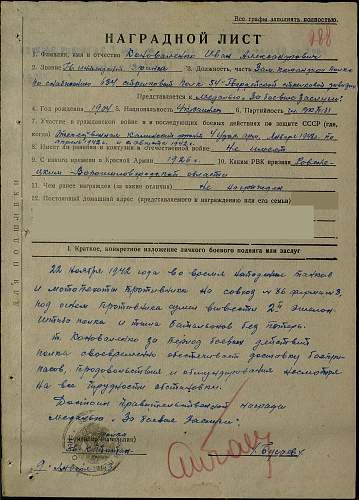 Все графы заполнять полностью.
188
НАГРАДНОЙ ЛИСТ
1. Фамилия, имя и отчество Коноваленко Иван Александрович
2. Звание 3. Должность, часть Зам. командира полка
по снабжению стрелкового полка 54 Гвардейской стрелковой дивизии
Представляется к медали „За боевые заслуги"
4. Год рождения 1904 5. Национальность Украинец 6. Партийность
7. Участие в гражданской войне и в последующих боевых действиях по защите СССР (где,
когда) Отечественная
8. Имеет ли ранения и контузии в отечественной войне Не имеет
9. С какого времени в Красной Армии 1926 г. 10. Каким РВК призван
Ворошиловградской области
11. Чем ранее награжден (за какие отличия) Не награжден
12. Постоянный домашний адрес (представляемого к награждению или его семьи)
ДЛЯ ПОДШИВКИ
I. Краткое, конкретное изложение личного боевого подвига или заслуг
22 ноября 1942 года во время нападения танков
и мотопехоты противника на совхоз № 86 ферма 3,
под огнем противника сумел вывести 2й эшелон
штаба полка и тыла батальонов без потерь.
т. Коноваленко за период боевых действий
полка своевременно обеспечивает доставку боепри-
пасов, продовольствия и обмундирования несмотря
на все трудности обстановки.
Достоин правительственной награды
медалью „За боевые заслуги".
Командир (начальник)